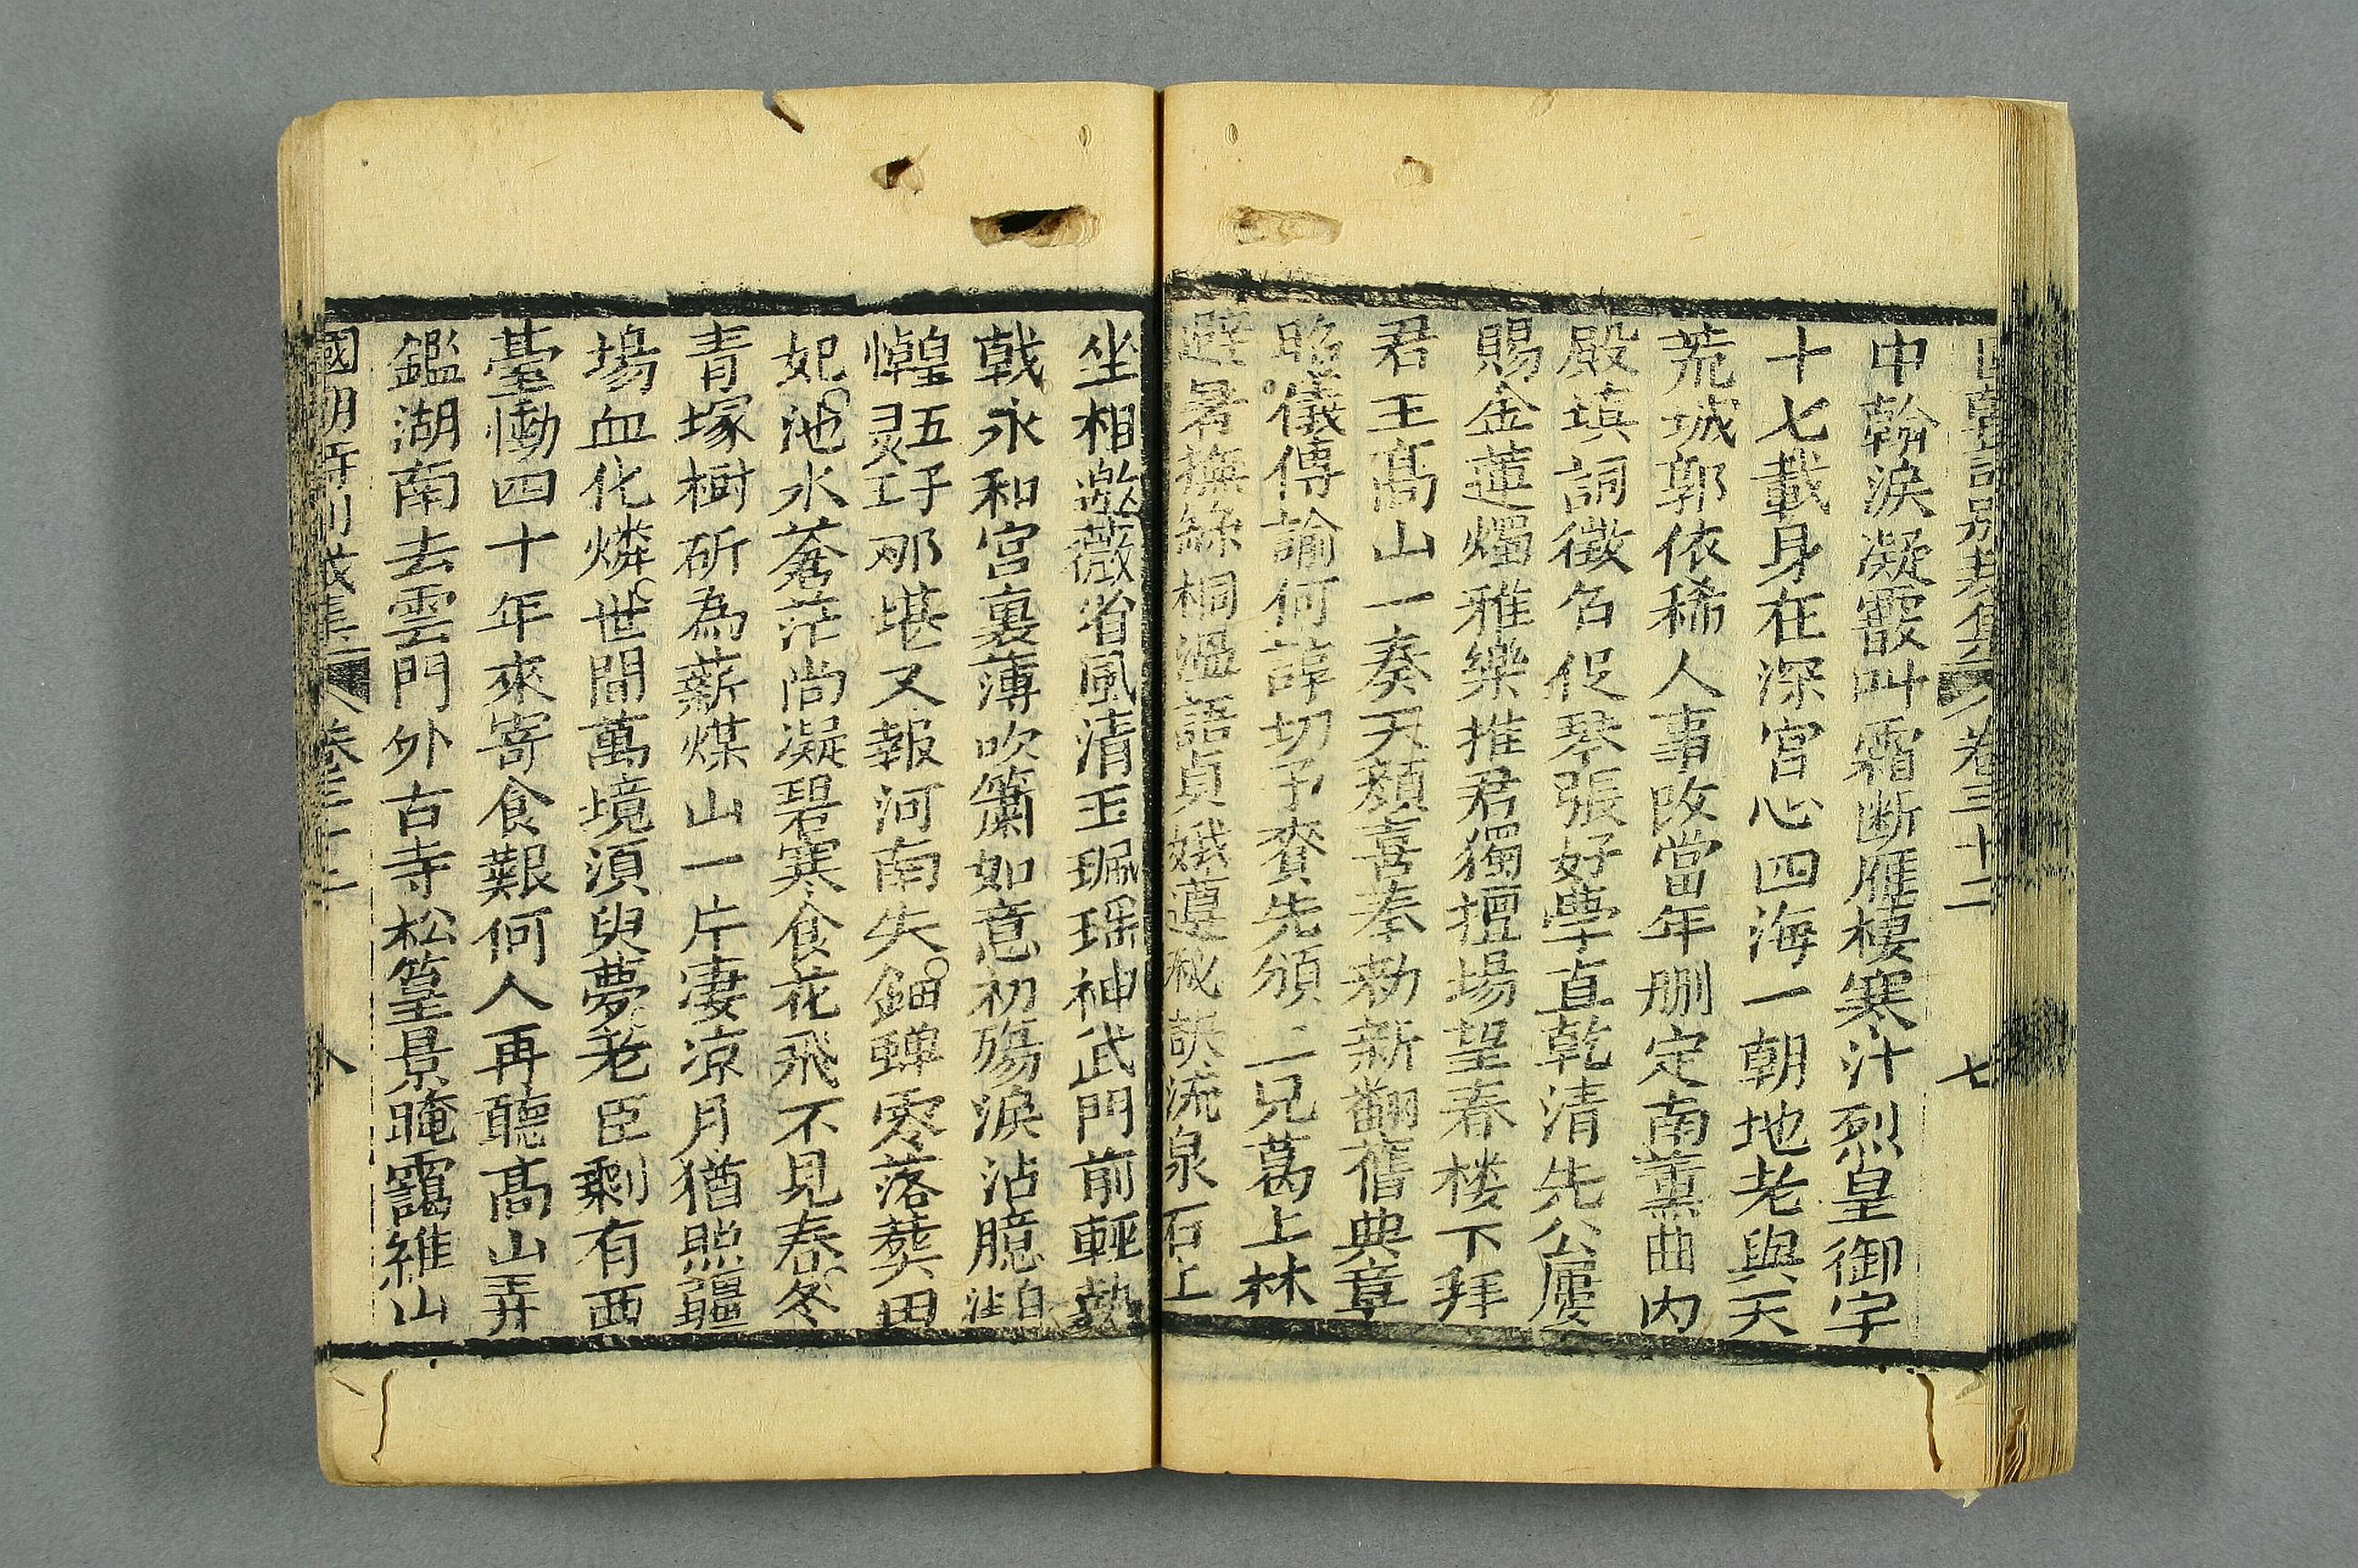 國朝詩別裁集 卷三十二 七
中斡淚凝霰叫霜斷雁棲寒汁烈皇御宇
十七載身在深宮心四海一朝地老與天
荒城郭依稀人事改當年刪定南薰曲内
殿填詞徵召促琴張好學直乾清先公屢
賜金蓮燭雅樂推君獨擅場望春楼下拜
君王髙山一奏天顔喜奉勅新翻舊典章
昭儀傳諭何諄切予賚先頒二兄葛上林
避暑撫絲桐温語貞娥遵秘訣流泉石上
坐相邀薇省風清玉珮瑶神武門前輕執
戟永和宫裏薄吹簫如意初殤淚沾臆沾自
悼皇五子靈那堪又報河南失鈿蟬零落葬田
妃池水蒼茫尚凝碧寒食花飛不見春冬
青塚樹斫為薪煤山一片凄凉月猶照疆
場血化燐世間萬境須臾夢老臣剩有西
臺慟四十年來寄食艱何人再聽髙山弄
鑑湖南去雲門外古寺松篁景晻靄維山
國朝詩別裁集 卷三十二 八